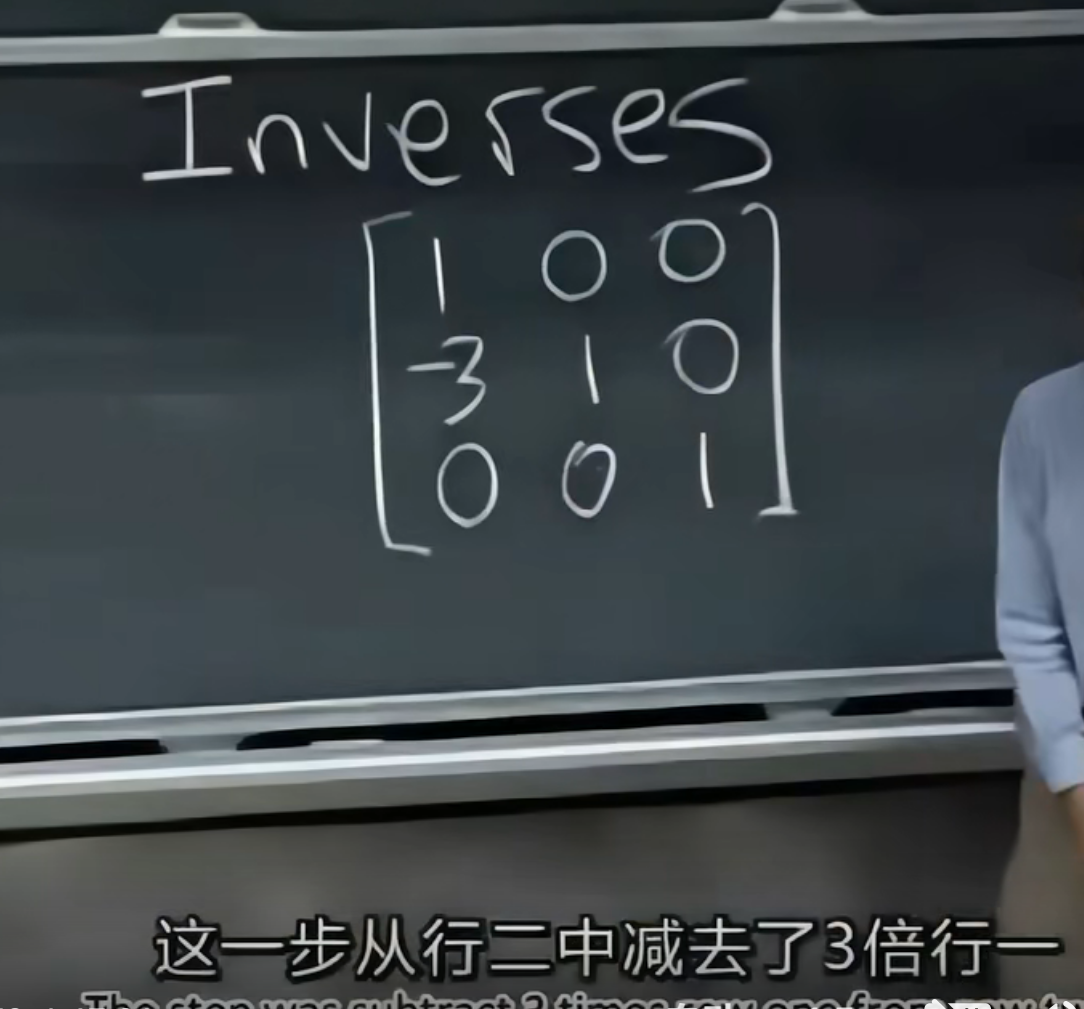 Inverses
1 0 0
-3 1 0
0 0 1
这一步从行二中减去了3倍行一
The step was subtract 3 times row one from